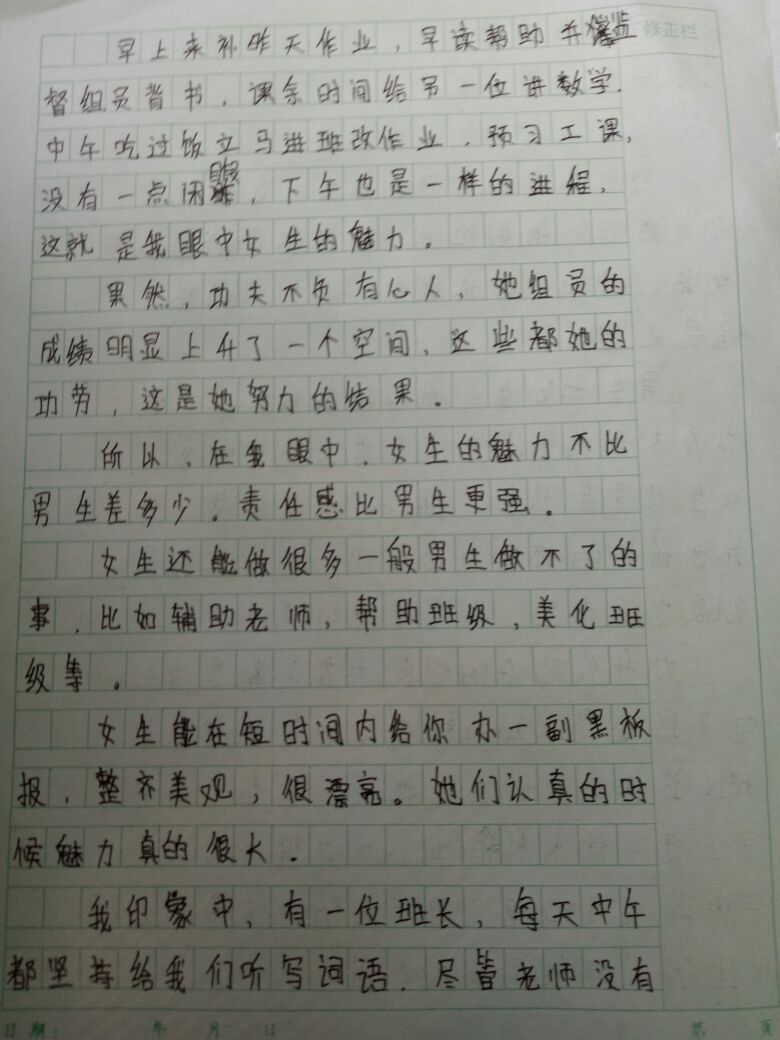 早上来补昨天作业，早读帮助并监
修正栏
督组员背书，课余时间给另一位讲数学．
中午吃过饭立马进班改作业．预习工课，
没有一点闲暇，下午也是一样的进程．
这就是我眼中女生的魅力。
果然，功夫不负有心人，她组员的
成绩明显上升了一个空间，这些都她的
功劳，这是她努力的结果。
所以、在我眼中．女生的魅力不比
男生差多少。责任感比男生更强。
女生还能做很多一般男生做不了的
事．比如辅助老师，帮助班级，美化班
级等。
女生能在短时间内给你办一副黑板
报，整齐美观，很漂亮。她们认真的时
候魅力真的很大．
我印象中，有一位班长，每天中午
都坚持给我们听写词语．尽管老师没有
日期： 年 月 日 第 页